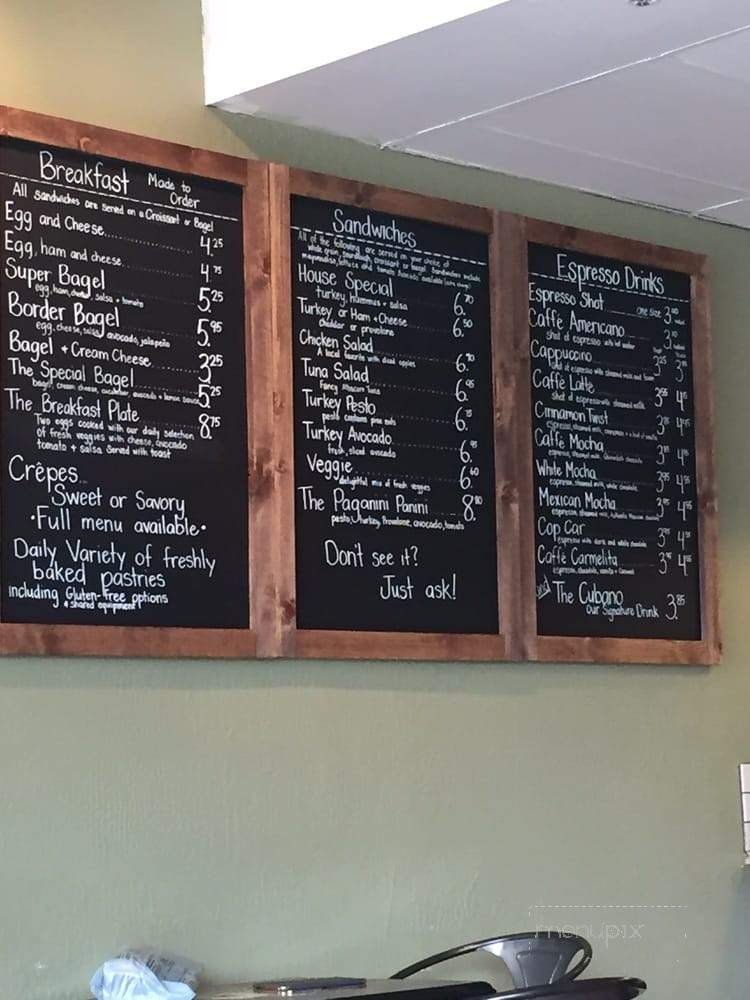 Breakfast Made to Order
All sandwiches are served on a Croissant or Bagel
Egg and Cheese 4.25
Egg, ham and cheese 4.75
Super Bagel 5.25
egg, ham, cheese, salsa + tomato
Border Bagel 5.95
egg, cheese, salsa, avocado, jalapeño
Bagel + Cream Cheese 3.25
The Special Bagel 5.25
bagel, cream cheese, cucumber, avocado + lemon sauce
The Breakfast Plate 8.75
Two eggs cooked with our daily selection
of fresh veggies with cheese, avocado
tomato + salsa. Served with toast
Crêpes...
Sweet or Savory
•Full menu available•
Daily Variety of freshly
baked pastries
including Gluten-Free options
* shared equipment
Sandwiches
All of the following are served on your choice of
whole grain, sourdough, croissant or bagel. Sandwiches include
mayonnaise, lettuce and tomato. Avocado available
House Special 6.70
turkey, hummus + salsa
Turkey or Ham + Cheese 6.50
cheddar or provolone
Chicken Salad 6.
A local favorite with diced apples
Tuna Salad 6.95
Fancy Albacore Tuna
Turkey Pesto 6.
pesto contains pine nuts
Turkey Avocado 6.
fresh, sliced avocado
Veggie 6.60
delightful mix of fresh veggies
The Paganini Panini 8.
pesto, turkey, Provolone, avocado, tomato
Don't see it?
Just ask!
Espresso Drinks
Espresso Shot one size 3.
Caffè Americano 3.
shot of espresso with hot water
Cappuccino
shot of espresso with steamed milk and foam
Caffè Latte
shot of espresso with steamed milk
Cinnamon Twist
Caffè Mocha
White Mocha
espresso, steamed milk, white chocolate
Mexican Mocha
Cop Car
Espresso with dark and white chocolate
Caffè Carmelita
espresso, chocolate, vanilla + Caramel
and The Cubano 3.85
our Signature Drink
menupix